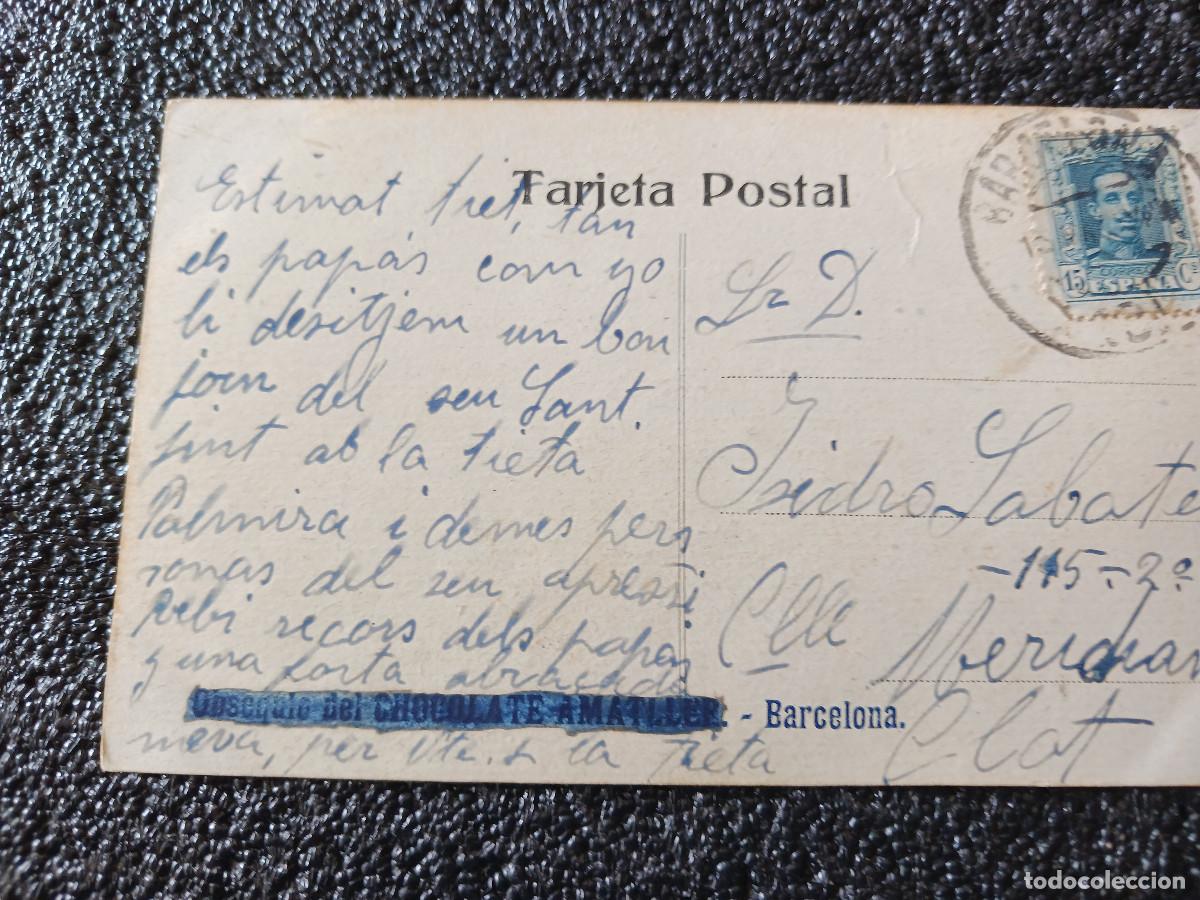 Tarjeta Postal
Estimat tiet, tan
els papás com yo
li desitjem un bon
join del seu Sant.
junt ab la tieta
Palmira i demes pers
sonas del seu apressi
rebi recors dels papas
y una forta abraçada
meva, per Vte. i la tieta
Obsequio del CHOCOLATE AMATLLER. - Barcelona.
Sr D.
Isidro Sabate
-115-2º
Clle Meridian
Clot
BARCELON
15 ESPAÑA Cs
CORREOS
todocoleccion